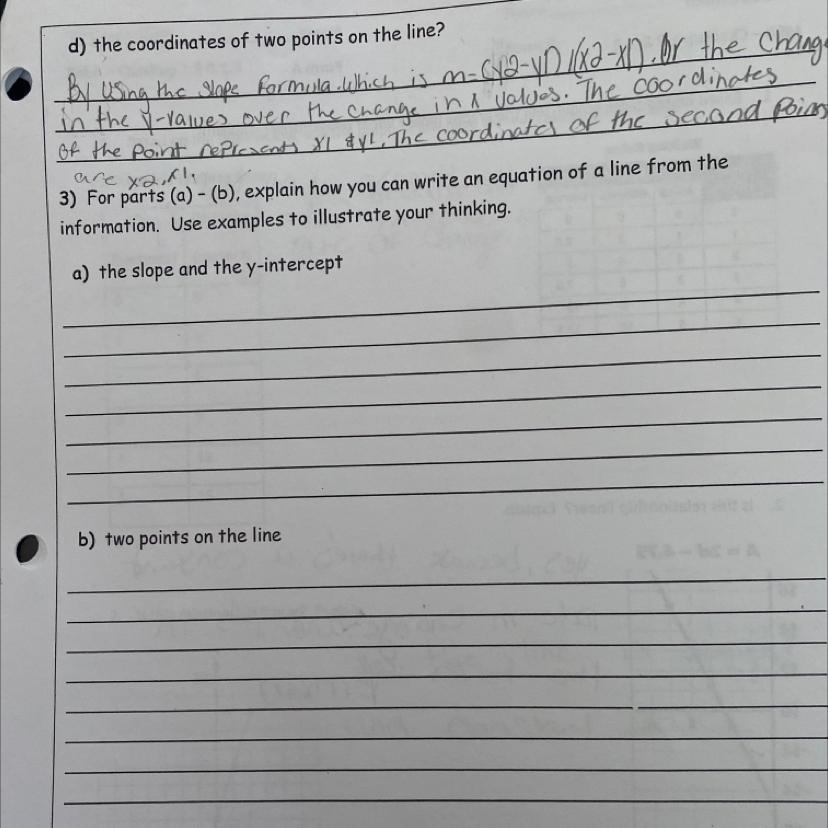 d) the coordinates of two points on the line?
By using the slope formula. Which is m=(y2-y1)/(x2-x1). Or the change
in the y-values over the change in x values. The coordinates
of the point represents x1 & y1. The coordinates of the second point
are x2,
3) For parts (a) - (b), explain how you can write an equation of a line from the
information. Use examples to illustrate your thinking.
a) the slope and the y-intercept
b) two points on the line